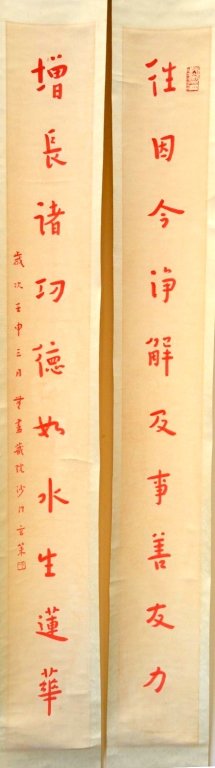 往因今诤解及事善友力
增長诸功德如水生蓮華
歲次壬申三月